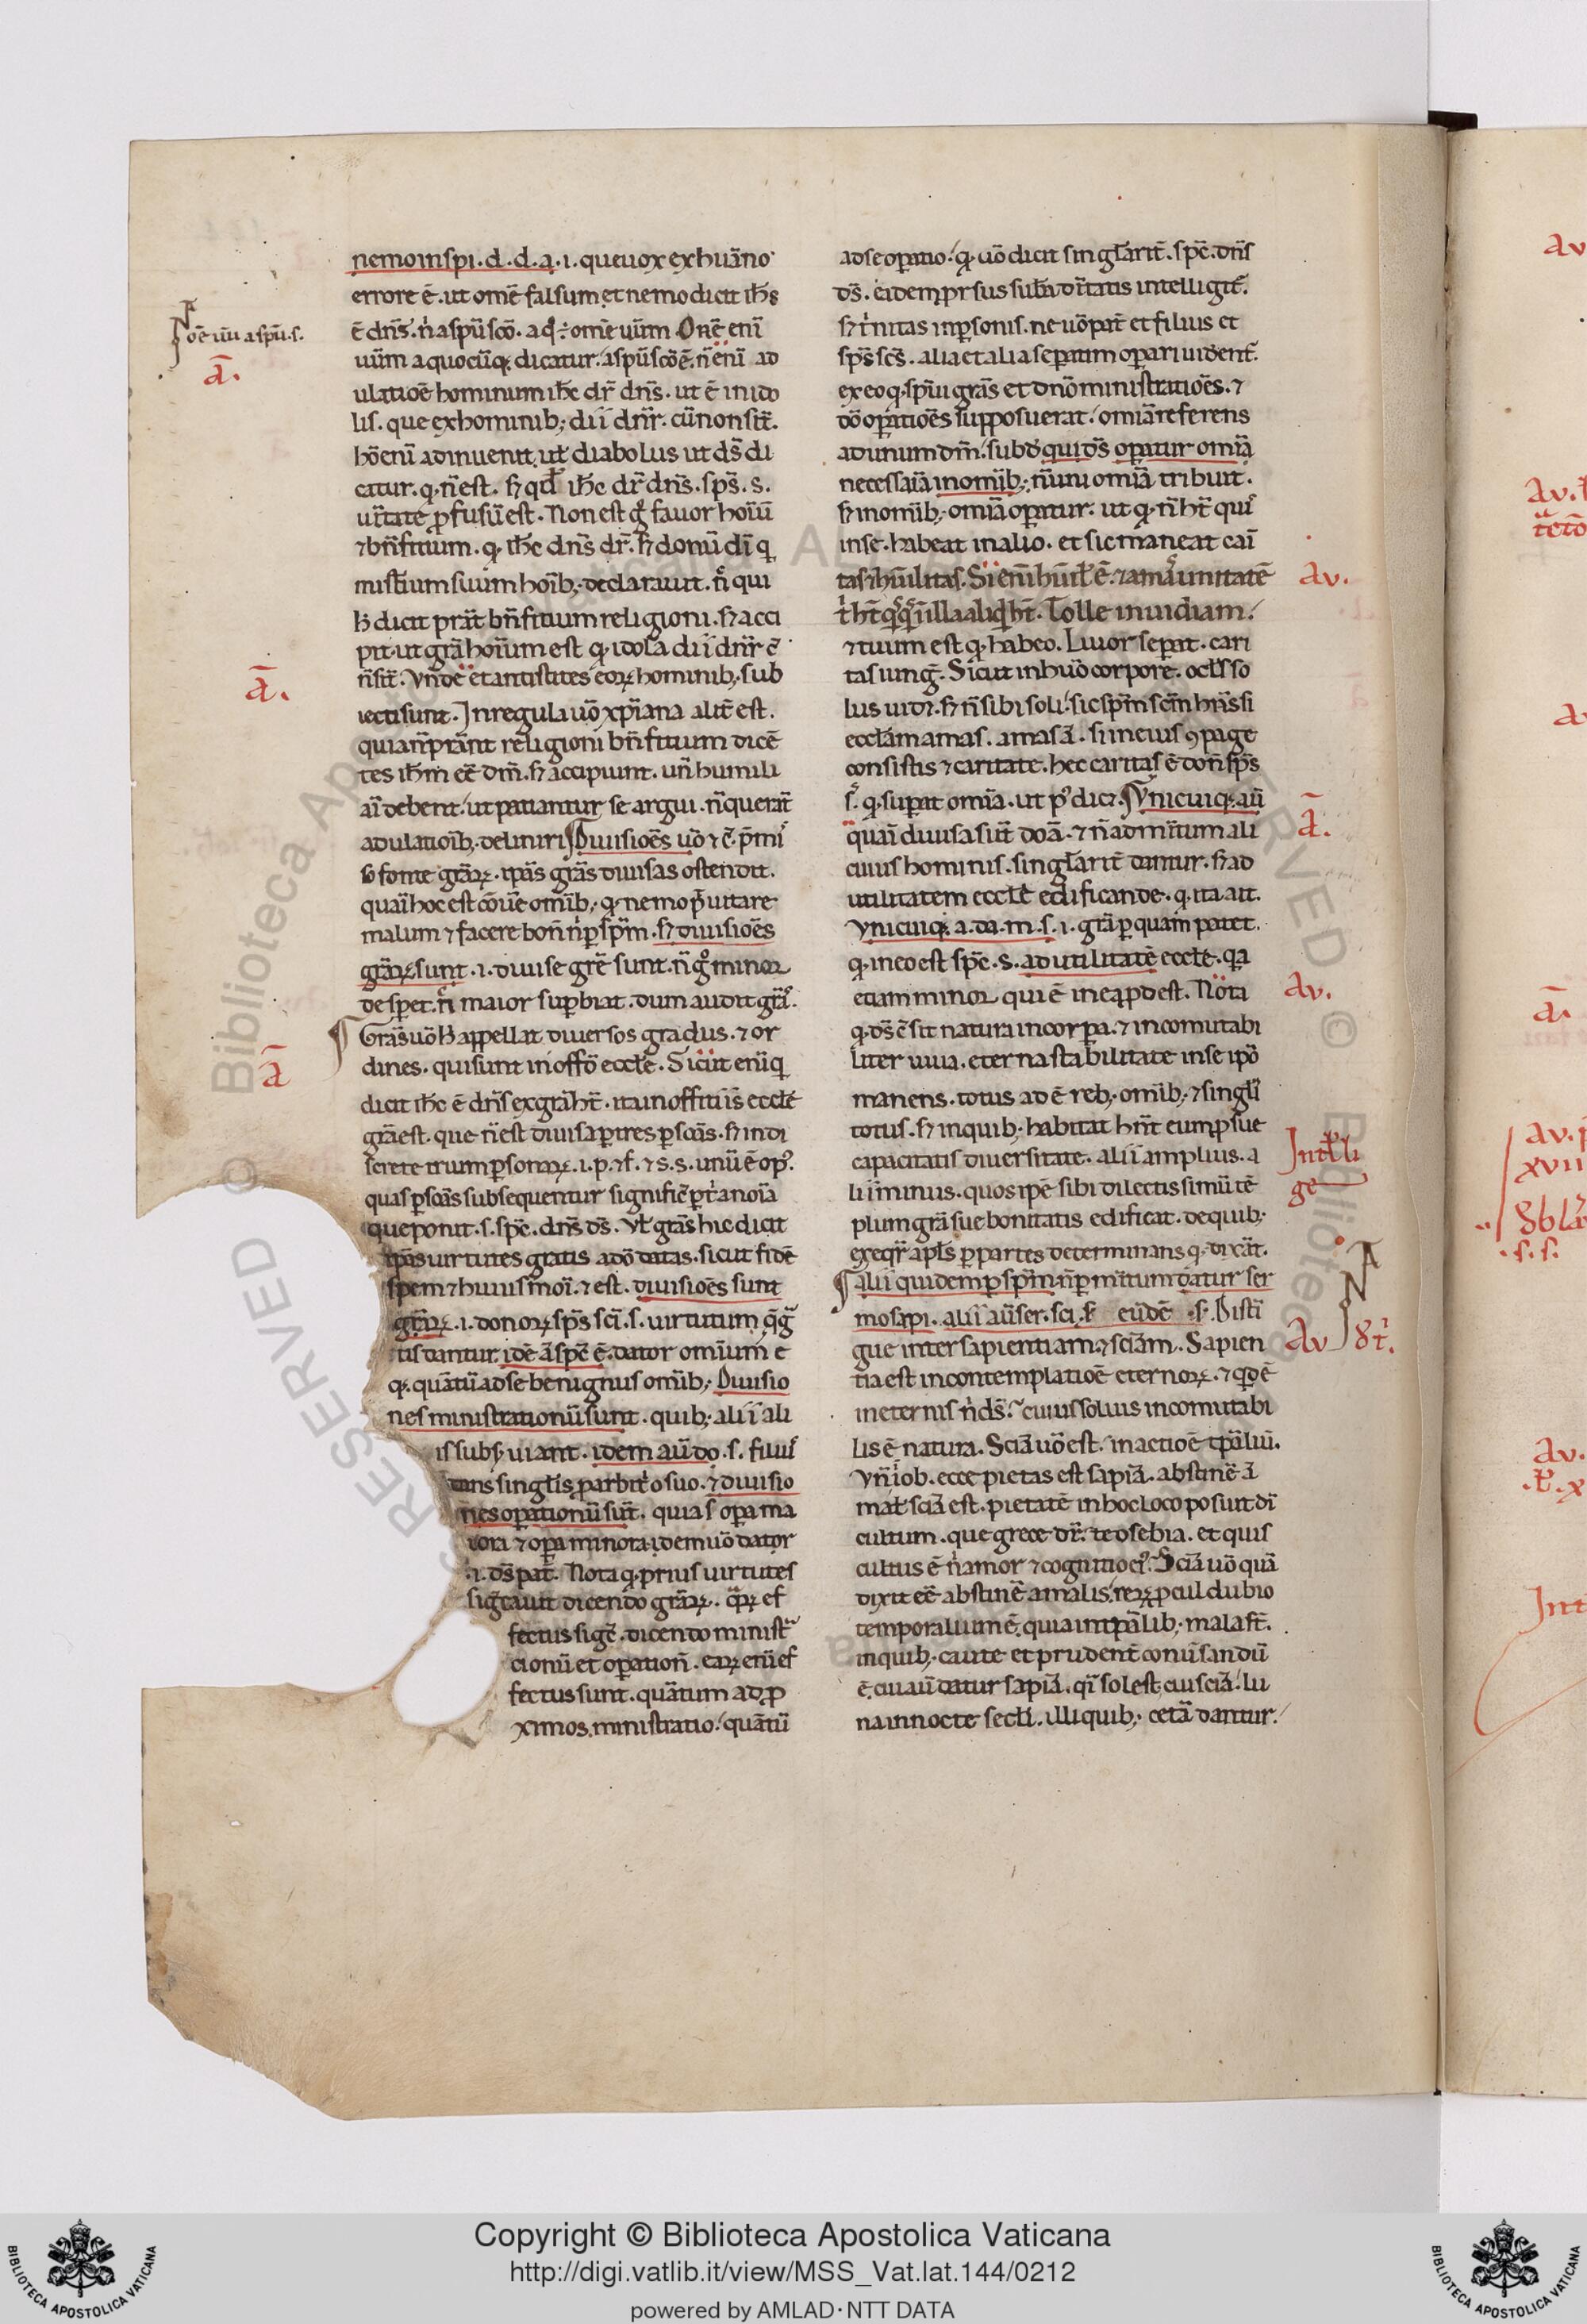 nemo in spi. d. d. a. i. que uox ex huāno
errore ē. ut omē falsum et nemo dicit ih̄s
ē dn̄s. n̄ a spū scō. a q° ÷ omē uūm. Om̄e enī
uūm a quocūq; dicatur. a spū scō ē. n̄ enī ad
ulatiōē hominum ih̄c dr̄ dn̄s. ut ē in ido
lis. que ex hominib; dii dn̄r. cū non sīt.
hō enī adinuenit ut diabolus ut ds̄ di
catur. q. n̄ est. ih̄c dr̄ dn̄s. sps̄. s.
est. Non est fauor hoīū
bn̄fitium. q. ih̄c dn̄s dr̄. donū dī q
misteium suum hoīb; declarauit. qui
dicit prāt bn̄fitium religioni. acci
pit. ut grā hoīum est q. idola dii dn̄r ē
n̄ sīt. Vn̄de et antistites eorꝝ hominib; sub
iecti sunt. In regula uō xp̄iana alīt est.
quia n̄ prānt religioni bn̄fitium dicē
tes ih̄m eē dn̄m. accipiunt. un̄ humili
aī debent. ut patiantur se argui. n̄ querāt
adulatiōīb; deliniri Diuisiōēs uō
fonte grārꝝ. ipās grās diuisas ostendit.
quāī hoc est cōuē omīb; q. nemo uitare
malum ⁊ facere bon̄ n̄ p spm̄. diuisiōēs
grārꝝ sunt. i. diuise grē sunt. n̄ minor
desp̄et. n̄ maior sup̄biat. dum audit
Grās uō appellat diuersos gradus. ⁊ or
dines. qui sunt in offō eccle. Sicut enī q
dicit ih̄c ē dn̄s ex grā ht̄. ita in offitiīs eccle
grā est. que n̄ est diuisa p tres p̄scās. in di
screte trium p̄sonarꝝ. i. p. ⁊ f. ⁊ s. s. unū ē op̄.
quas p̄scās subsequentur
que ponit. s. spe. dn̄s ds̄. Vl̄ grās hic dicit
ipās uirtutes gratis a dō datas. sicut fidē
spem ⁊ huiusmōi. ⁊ est. diuisiōēs sunt
grārꝝ. i. donorꝝ sps̄ scī. s. uirtutum
tis dantur. idē ā spē ē. dator omīum e
q. quātū ad se benignus omīb; Diuisio
nes ministrationū sunt. quib; alii ali
is subs̄uiant. idem aū do. s. filiī
dans singlis. p arbit̄o suo. ⁊ diuisio
nes op̄ationū sūt. quia s̄ op̄a ma
iora ⁊ op̄a minora. idem uō dator
.i. ds̄ pat̄. Nota q. prius uirtutes
siḡcauit dicendo grārꝝ. ef
fectus sigc̄. dicendo minist̄
cionū et op̄ation̄. earꝝ enī ef
fectus sunt. quātum ad p
ximos. ministratio. quātū
ad se op̄atio. q. uō dicit singlārit̄. spē. dn̄s
ds̄. eidem intelligit̄.
t̄nitas in p̄sonis. ne uō pat̄ et filius et
sps̄ scs̄. alia et alia sep̄atim op̄ari uident̄.
ex eo q. spūi grās et dnō ministratiōēs. ⁊
dō op̄atiōēs supposuerat. omīa referens
ad unum dm̄. subd qui ds̄ op̄atur omīa
necessaīa in omīb; n̄ uni omīa tribuit.
in omīb; omīa op̄atur. ut q. n̄ ht̄
in se. habeat in alio. et sic maneat cāī
tas ⁊ hūilitas. Si enī hūil ē. ⁊ amā unitatē
Tolle inuidiam.
⁊ tuum est q. habeo. Liuor sep̄at. cari
tas iung̃. Sicut in huō corpore. ocls̄ so
lus uidȝ. n̄ sibi soli. sic spm̄ scm̄ hn̄s si
ecclām amas. amas ā. si in eius ꝯpage
consistis ⁊ caritate. hec caritas ē don̄ sps̄
s. q. sup̄at omīa. ut p° dicȝ. Vnicuiq; aū
quāī diuisa sūt dōa. ⁊ n̄ ad mītum ali
cuius hominis. singlārit̄ dantur. ad
utilitatem eccle edificande. q. ita ait.
Vnicuiq; a. da. m. s. i. grā p quam patet.
q. in eo est spē. s. ad utilitatē eccle. qa
etiam minor qui ē in ea pdest. Nota
q. ds̄ ē sit natura incorpa. ⁊ incomutabi
liter uiua. eterna stabilitate in se ipō
manens. totus ad ē reb; omīb; ⁊ singlī
totus. in quib; habitat hn̄t eum p sue
capacitatis diuersitate. alii amplius. a
lii minus. quos ipē sibi dilectissimū tē
plum grā sue bonitatis edificat. de quib;
exeqr̄ apls̄ p partes determinans q. dixāt.
Alii quidem p spm̄ n̄ p mītum datur ser
mo sapi. alii aū ser. sci. eūdē s. Disti
gue inter sapientiam ⁊ sciām. Sapien
tia est in contemplatiōē eternorꝝ. ⁊
in eternis n̄ ds̄. cuius solius incomutabi
lis ē natura. Sciā uō est. in actiōē tp̄aliū.
Vn̄ iob. ecce pietas est sapiā. abstinē ā
mal̄ sciā est. pietatē in hoc loco posuit dī
cultum. que grece dr̄. teosebia. et quis
cultus ē n̄ amor ⁊ cognitio ei°. Sciā uō quā
dixit eē abstinē a malis. rerꝝ pcul dubio
temporalium ē. quia in tp̄alib; mala st̄.
in quib; caute et prudent̄ conūsandū
ē. cui aū datur sapiā. qī sol est. cui sciā. lu
na in nocte secli. illi quib; cetā dantur.
Nōē uū a spū. s.
ā.
ā.
ā
av.
ā.
av.
Intelli
ge
NA
Av
av.
ā.
av.
Copyright © Biblioteca Apostolica Vaticana
http://digi.vatlib.it/view/MSS_Vat.lat.144/0212
powered by AMLAD·NTT DATA
BIBLIOTECA APOSTOLICA VATICANA
BIBLIOTECA APOSTOLICA VATICANA